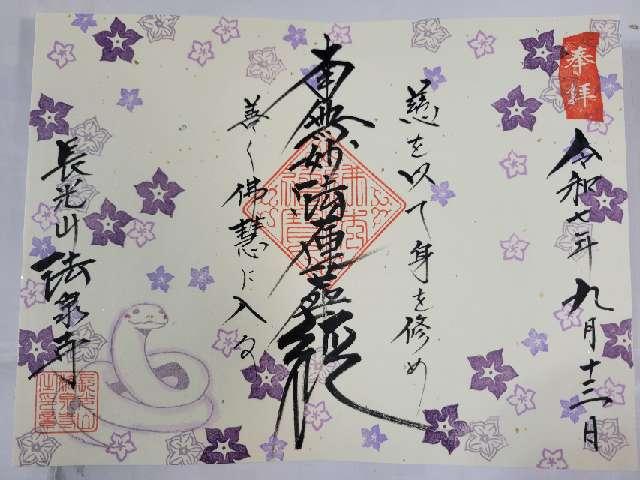 奉拝
令和七年 九月十三日
慈を以て身を修め
南無妙法蓮華経
善く佛慧に入る
長光山 法泉寺